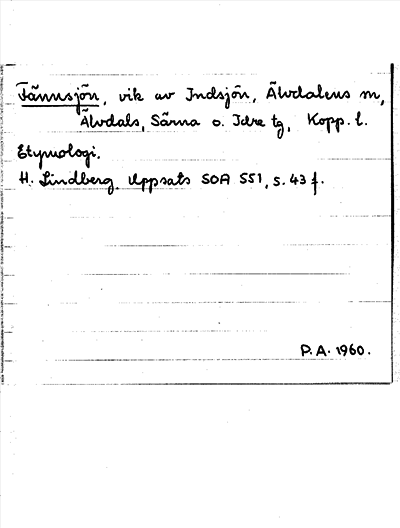 Fännsjön, vik av Indsjön, Älvdalens m,
Älvdals, Särna o. Idre tg, Kopp. l.
Etymologi.
H. Lindberg. Uppsats SOA 551, s. 43 f.
P. A. 1960.